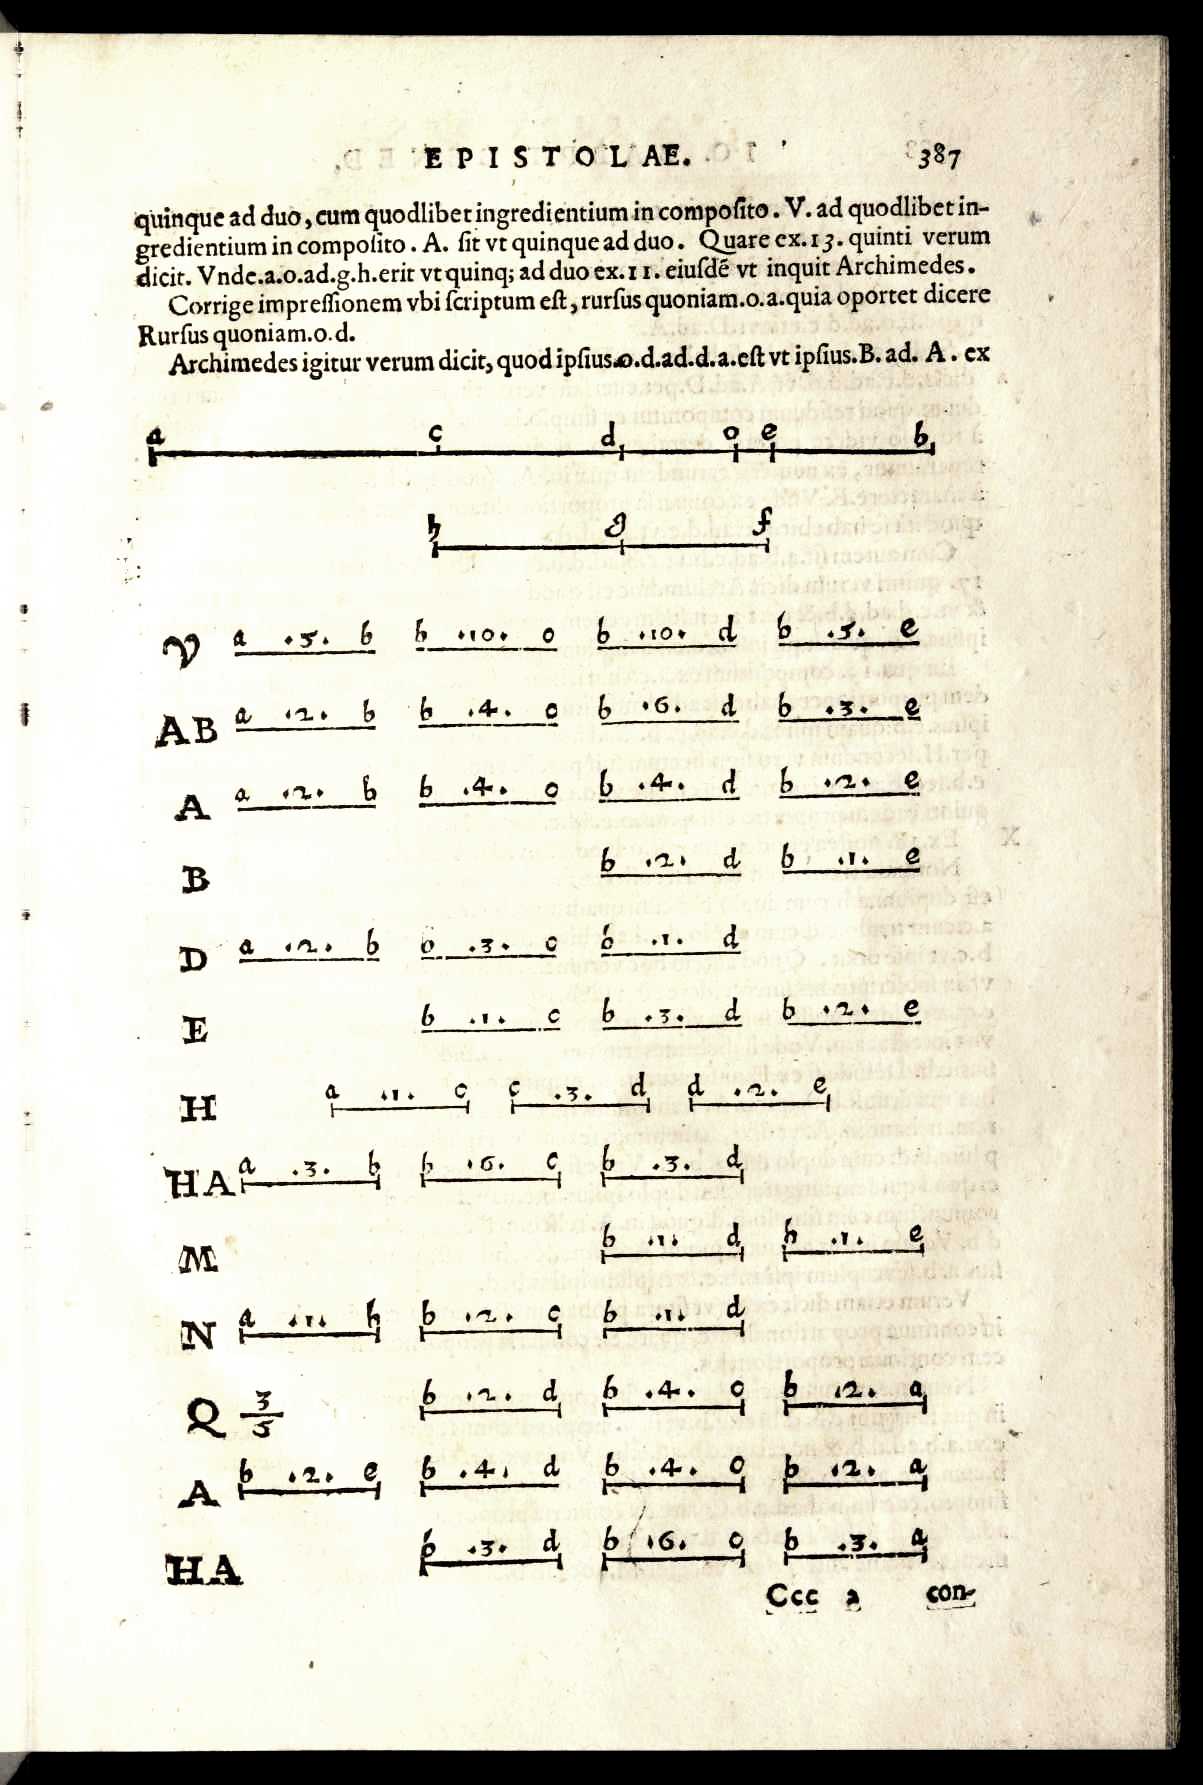 EPISTOLAE. 387
quinque ad duo, cum quodlibet ingredientium in composito. V. ad quodlibet in-
gredientium in composito. A. sit vt quinque ad duo. Quare ex.13. quinti verum
dicit. Vnde.a.o.ad.g.h.erit vt quinq; ad duo ex.11. eiusdē vt inquit Archimedes.
Corrige impressionem vbi scriptum est, rursus quoniam.o.a.quia oportet dicere
Rursus quoniam.o.d.
Archimedes igitur verum dicit, quod ipsius.o.d.ad.d.a.est vt ipsius.B. ad. A. ex
a c d o e b
h g f
V a .5. b b .10. o b .10. d b .5. e
AB a .2. b b .4. o b .6. d b .3. e
A a .2. b b .4. o b .4. d b .2. e
B b .2. d b .1. e
D a .2. b b .3. c b .1. d
E b .1. c b .3. d b .2. e
H a .1. c c .3. d d .2. e
HA a .3. b b .6. c b .3. d
M b .1. d b .1. e
N a .1. b b .2. c b .1. d
Q 3/5 b .2. d b .4. o b .2. a
A b .2. e b .4. d b .4. o b .2. a
HA b .3. d b .6. o b .3. a
Ccc a con-